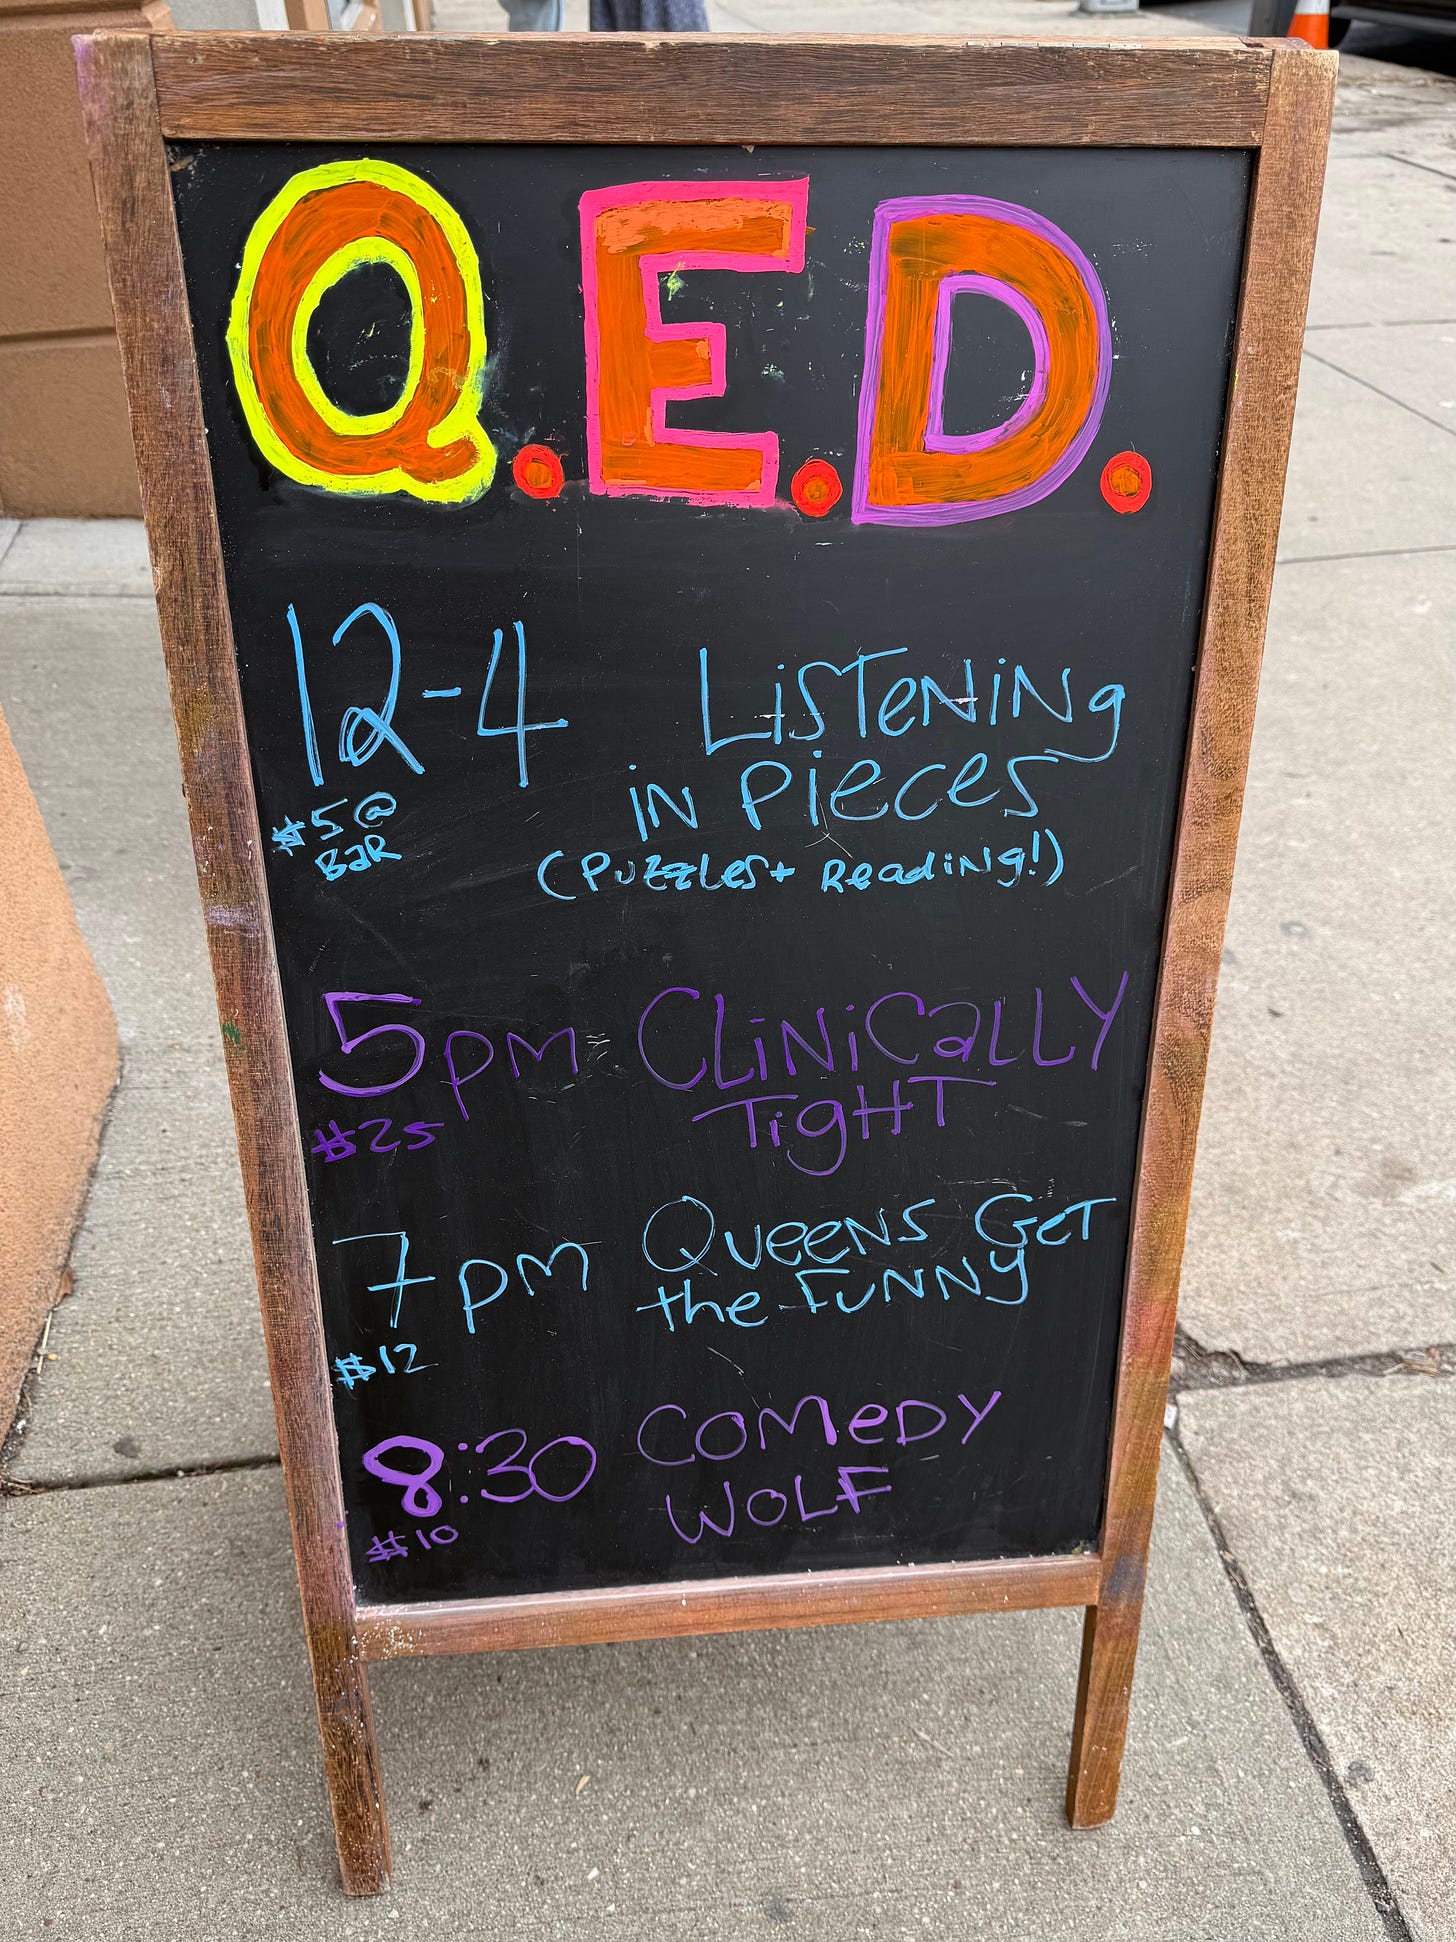 Q.E.D.
12-4 Listening
in pieces
$5@
Bar
(Puzzles + Reading!)
5pm Clinically
Tight
$25
7pm Queens Get
the Funny
$12
8:30 Comedy
Wolf
$10